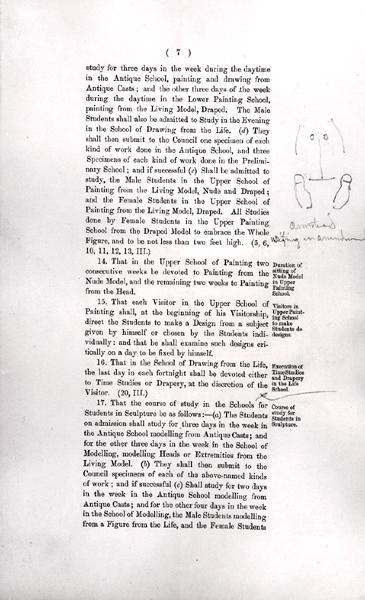 ( 7 )
study for three days in the week during the daytime
in the Antique School, painting and drawing from
Antique Casts; and the other three days of the week
during the daytime in the Lower Painting School,
painting from the Living Model, Draped. The Male
Students shall also be admitted to Study in the Evening
in the School of Drawing from the Life. (d) They
shall then submit to the Council one specimen of each
kind of work done in the Antique School, and three
Specimens of each kind of work done in the Prelimi-
nary School; and if successful (e) Shall be admitted to
study, the Male Students in the Upper School of
Painting from the Living Model, Nude and Draped;
and the Female Students in the Upper School of
Painting from the Living Model, Draped. All Studies
done by Female Students in the Upper Painting
School from the Draped Model to embrace the Whole
Figure, and to be not less than two feet high. (5, 6,
10, 11, 12, 13, III.)
14. That in the Upper School of Painting two
consecutive weeks be devoted to Painting from the
Nude Model, and the remaining two weeks to Painting
from the Head.
Duration of
sitting of
Nude Model
in Upper
Painting
School.
15. That each Visitor in the Upper School of
Painting shall, at the beginning of his Visitorship,
direct the Students to make a Design from a subject
given by himself or chosen by the Students indi-
vidually: and that he shall examine such designs cri-
tically on a day to be fixed by himself.
Visitors in
Upper Paint-
ing School
to make
Students do
designs.
16. That in the School of Drawing from the Life,
the last day in each fortnight shall be devoted either
to Time Studies or Drapery, at the discretion of the
Visitor. (20, III.)
Execution of
Time Studies
and Drapery
in the Life
School.
17. That the course of study in the Schools for
Students in Sculpture be as follows:—(a) The Students
on admission shall study for three days in the week in
the Antique School modelling from Antique Casts; and
for the other three days in the week in the School of
Modelling, modelling Heads or Extremities from the
Living Model. (b) They shall then submit to the
Council specimens of each of the above-named kinds
of work; and if successful (c) Shall study for two days
in the week in the Antique School modelling from
Antique Casts; and for the other four days in the week
in the School of Modelling, the Male Students modelling
from a Figure from the Life, and the Female Students
Course of
study for
Students in
Sculpture.